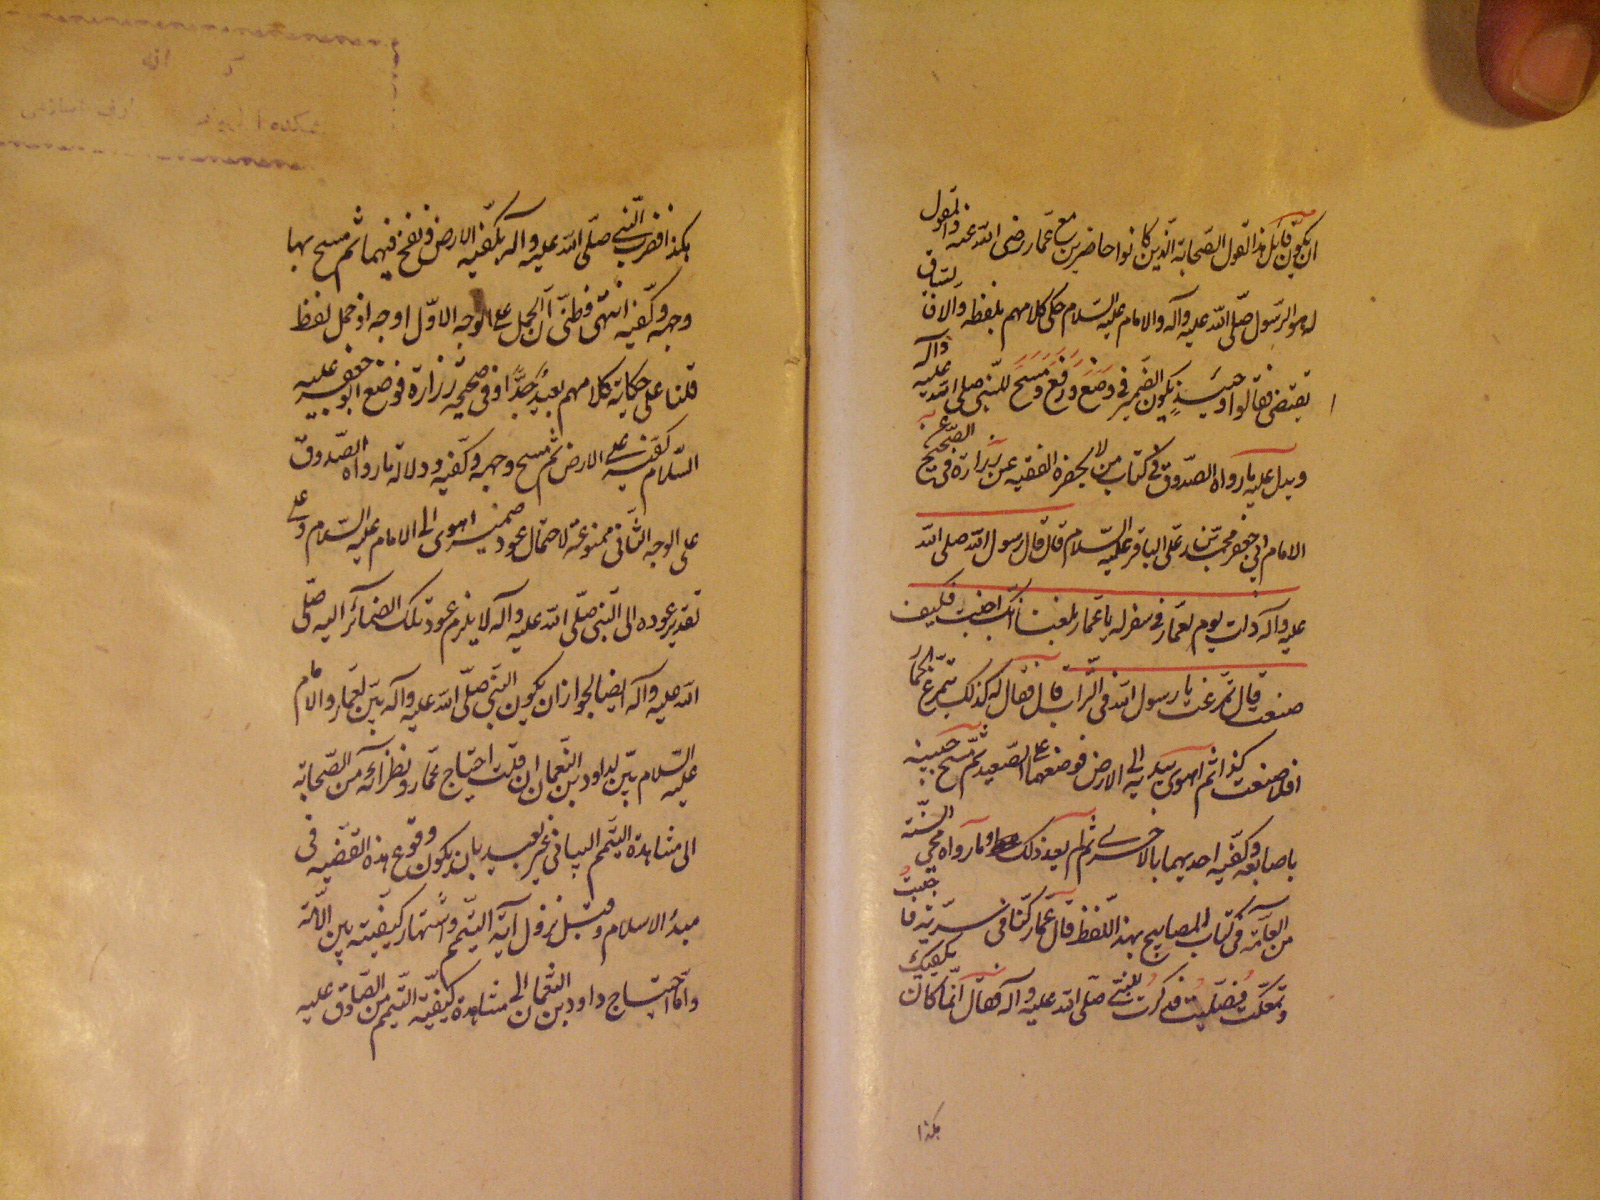 ان يكون قائل هذا القول الصحابة الذين كانوا حاضرين مع عمار رضى الله عنه والمقول
له هو الرسول صلّى الله عليه وآله والامام عليه السلام حكى كلامهم بلفظه والا فالسياق
يقتضى فقالوا وحينئذ يكون الضمير فى وضع ورفع ومسح للنبى صلى الله عليه وآله
ويدل عليه ما رواه الصدوق فى كتاب من لا يحضره الفقيه عن زرارة فى الصحيح عن
الامام ابى جعفر محمد بن على الباقر عليه السلام قال قال رسول الله صلى الله
عليه وآله ذات يوم لعمار فى سفر له يا عمار بلغنا انك اجنبت فكيف
صنعت قال تمرغت يا رسول الله فى التراب قال فقال له كذلك يتمرغ الحمار
افلا صنعت كذا ثم اهوى بيديه الى الارض فوضعهما على الصعيد ثم مسح جبينيه
باصابعه وكفيه احديهما بالاخرى ثم لم يعد ذلك وما رواه محيى السنة
من العامّة فى كتاب المصابيح بهذا اللفظ قال عمار كنا فى سرية فاجنبت
وتمعكت فصليت فذكرت للنبى صلّى الله عليه وآله فقال انما كان يكفيك
هكذا
هكذا فضرب النبى صلّى الله عليه وآله بكفيه الارض ونفخ فيهما ثم مسح بها
وجهه وكفيه انتهى فظنّى ان الحمل على الوجه الاول اوجه اذ حمل لفظ
قلنا على حكاية كلامهم بعيد جدّا وفى صحيحة زرارة فوضع ابو جعفر عليه
السلام كفيه على الارض ثم مسح وجهه وكفيه ودلالة ما رواه الصدوق
على الوجه الثانى ممنوعة لاحتمال عود ضمير اهوى الى الامام عليه السلام وعلى
تقدير عوده الى النبى صلّى الله عليه وآله لا يلزم عود تلك الضمائر اليه صلّى
الله عليه وآله ايضا لجواز ان يكون النبى صلّى الله عليه وآله بيّن لعمار والامام
عليه السلام بيّن لداود بن النعمان ان قلت احتياج عمار ونظرائه من الصحابة
الى مشاهدة التيمم البيانى غير بعيد بان يكون وقوع هذه القضيه فى
مبدأ الاسلام وقبل نزول آية التيمم واشتهار كيفيته بين الامّة
وامّا احتياج داود بن النعمان الى مشاهدة كيفية التيمم من الصادق عليه